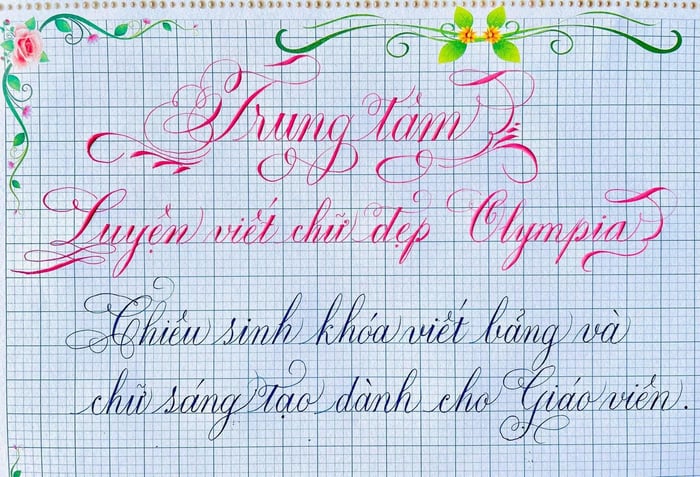 Trung tâm
Luyện viết chữ đẹp Olympia
Chiêu sinh khóa viết bảng và
chữ sáng tạo dành cho Giáo viên.